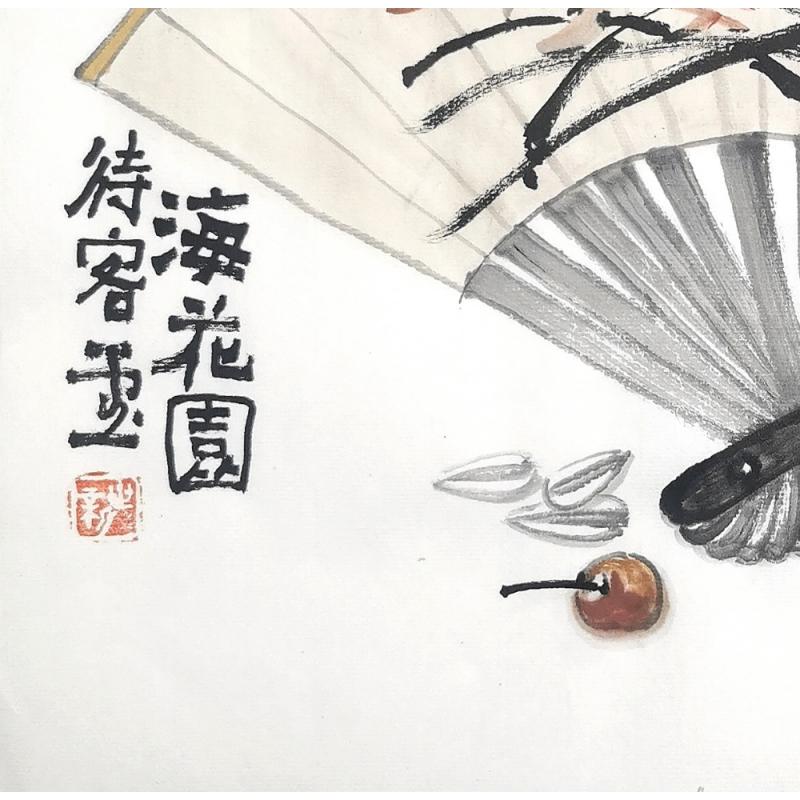 海花園
待客畫